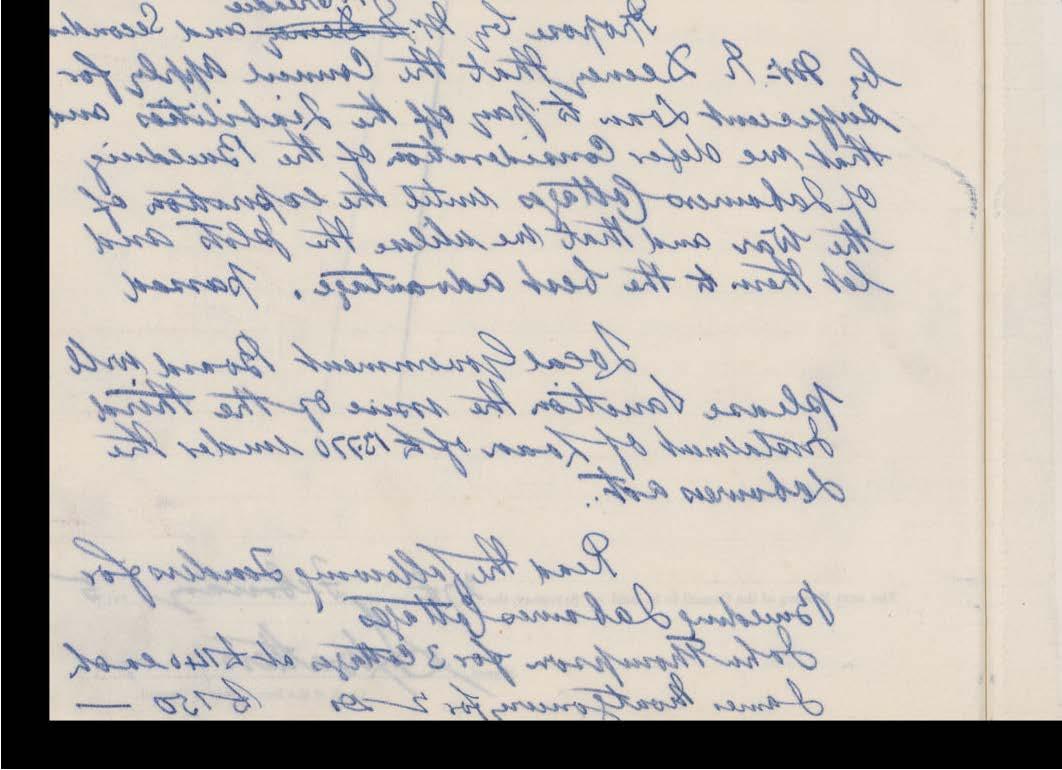 Propose by Mr. and Seconded
by Mr. R Deeney that the Council apply for
sufficient Loan to pay off the Liabilities and
that we defer Consideration of the Building
of Labourers Cottages until the expiration of
the War and that we utilise the plots and
let them to the best advantage. passed
Local Government Board will
please Sanction the issue of the third
Instalment of Loan of £ 13770 under the
Labourers act.
Read the following Tenders for
Building Labourers Cottages
John Thompson for 3 Cottages at £140 each
James Montgomery for 2 Do £150 —